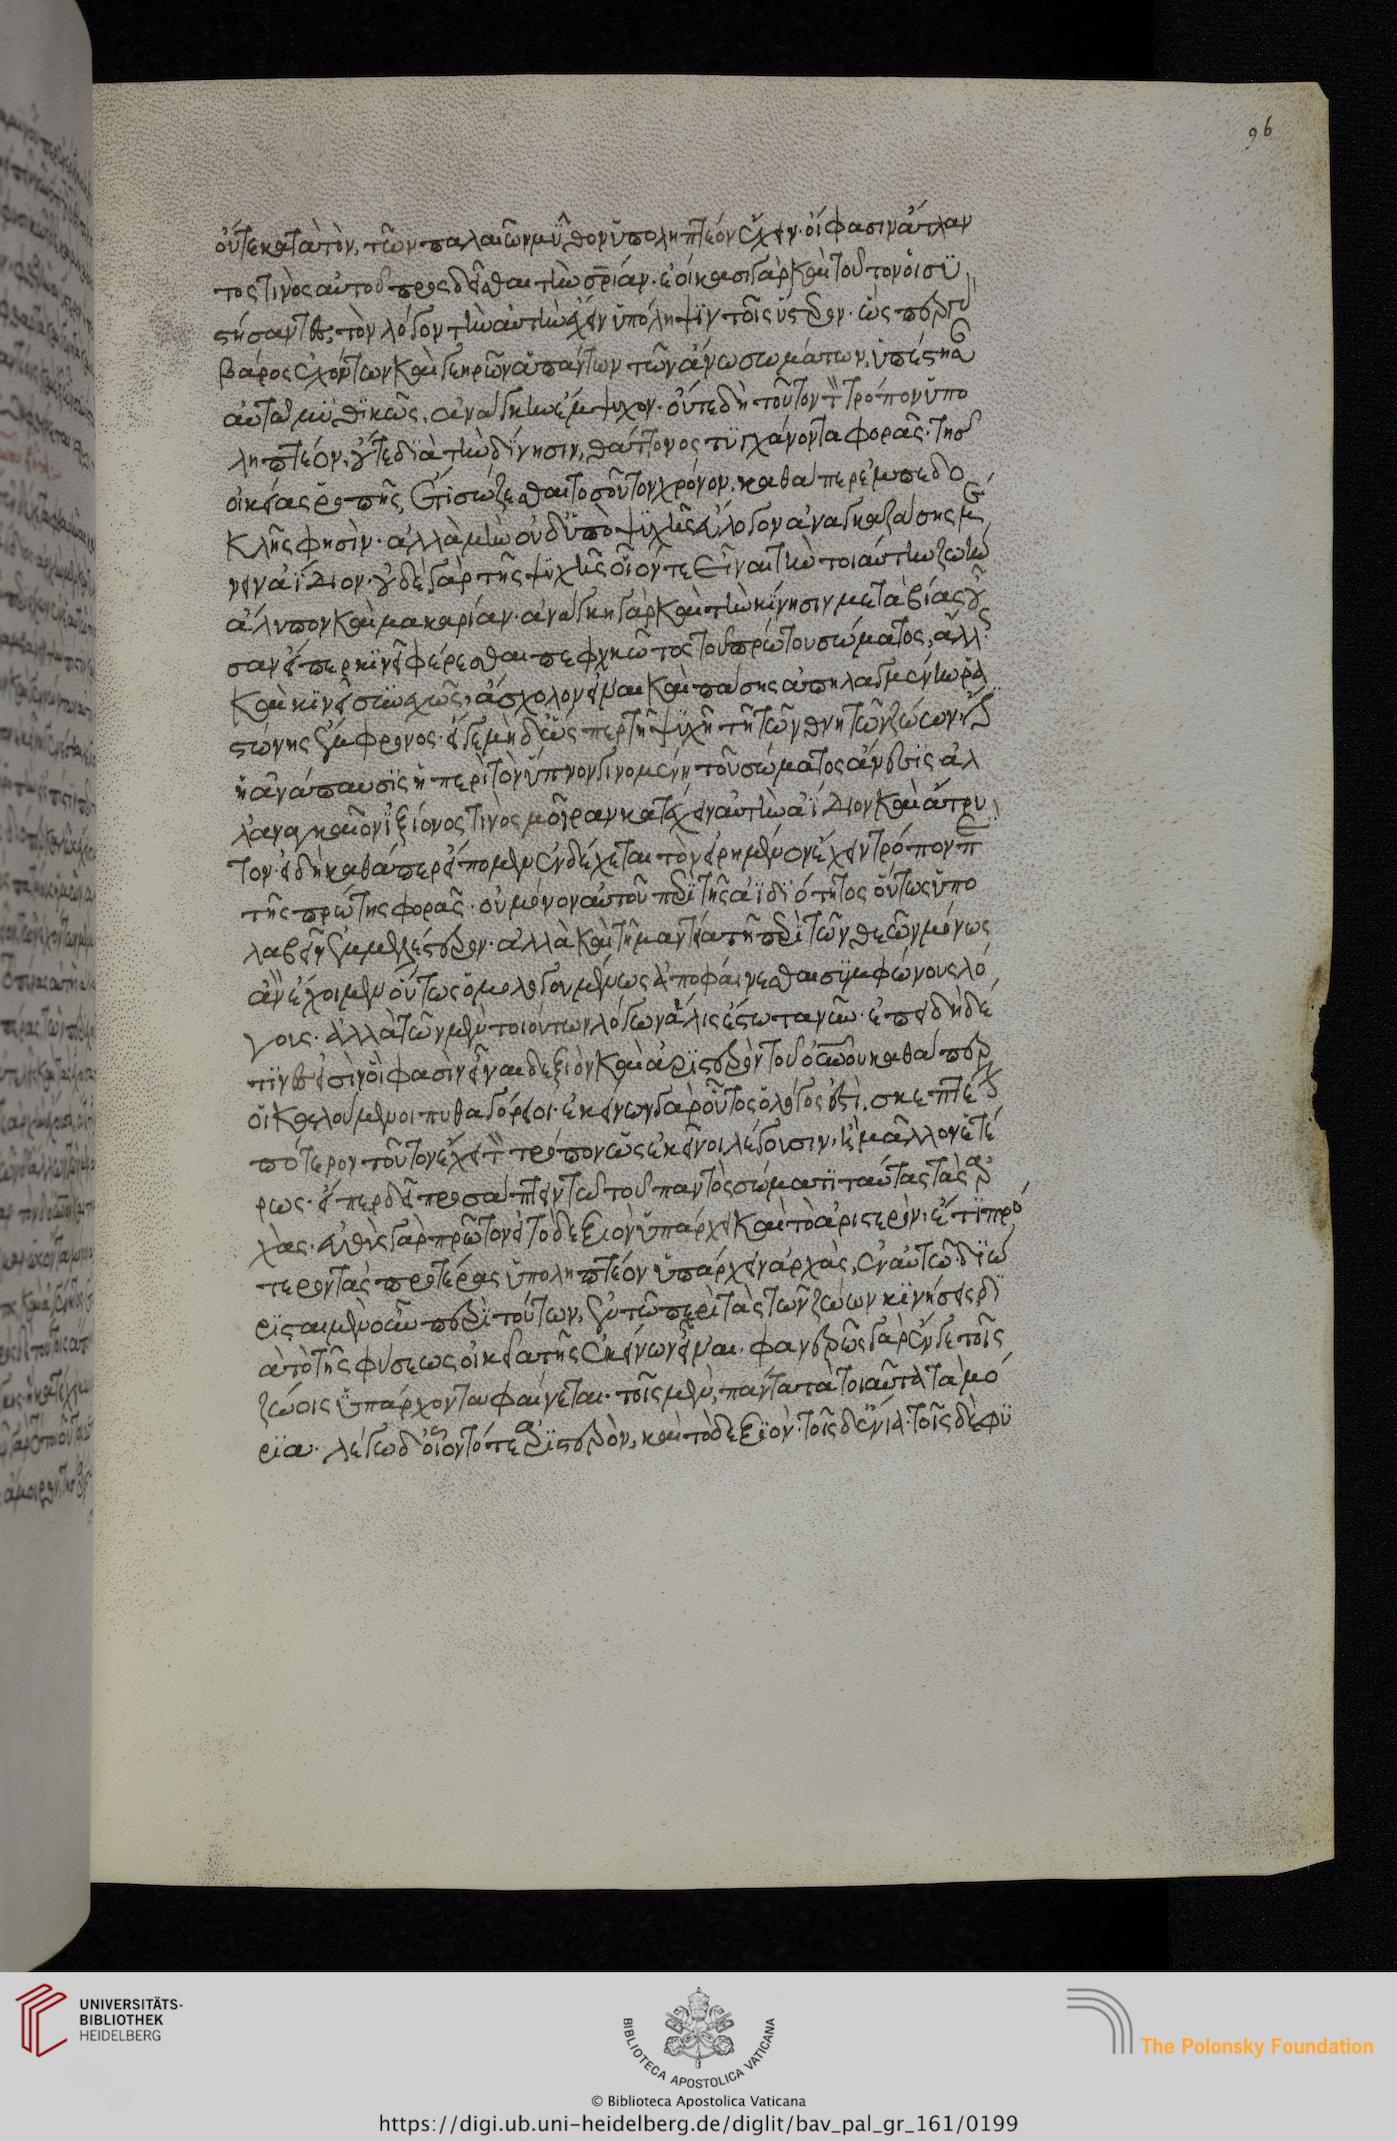 οὔτε κατὰ τὸν, τῶν παλαιῶν μῦθον ὑποληπτέον ἔχειν· οἵ φασιν ἄτλαν
τος τινὸς αὐτῶ προσδεῖσθαι τὴν σρίαν· ἐοίκασι γὰρ καὶ τοῦτον οἱ συ
στήσαντες, τὸν λόγον τὴν αὐτὴν ἔχειν ὑπόληψιν τοῖς ὕστερον· ὡς περὶ
βάρος ἐχόντων καὶ γεηρῶν ἁπάντων τῶν ἄνω σωμάτων, ὑπέστησαν
αὐτῶ μυθικῶς, ἀνάγκην ἔμψυχον· οὔτε δὴ τοῦτον τὸν τρόπον ὑπο
ληπτέον, οὔτε διὰ τὴν δίνησιν, θάττονος τυγχάνοντα φορᾶς· τῆς
οἰκείας ῥοπῆς, ἔτι σώζεσθαι τοσοῦτον χρόνον, καθάπερ ἐμπεδο
κλῆς φησίν· ἀλλὰ μὴν οὐδ ὑπὸ ψυχῆς εὔλογον ἀναγκαζούσης μέ
νειν ἀΐδιον· οὐδὲ γὰρ τῆς ψυχῆς οἷόν τε εἶναι τὴν τοιαύτην ζωὴν
ἄλυπον καὶ μακαρίαν· ἀνάγκη γὰρ καὶ τὴν κίνησιν μετὰ βίας οὖ
σαν εἴπερ κινεῖ φέρεσθαι πεφυκότος τοῦ πρώτου σώματος, ἄλλως
καὶ κινεῖ συνεχῶς, ἄσχολον εἶναι καὶ πάσης ἀπηλαγμένην ῥα
στώνης ἔμφρονος· εἴγε μηδ ὥσπερ τῆ ψυχῆ τῆ τῶν θνητῶν ζώων· ἐστιν
ἡ ἀνάπαυσις ἡ περὶ τὸν ὕπνον γινομένη τοῦ σώματος ἄνεσις ἀλ
λ ἀναγκαῖον ἰξίονος τινὸς μοῖραν κατέχειν αὐτὴν ἀΐδιον καὶ ἄτρυ
τον· εἰ δὴ καθάπερ εἴπομεν ἐνδέχεται τὸν εἰρημένον ἔχειν τρόπον περὶ
τῆς πρώτης φορᾶς· οὐ μόνον αὐτοῦ περὶ τῆς ἀϊδιότητος οὕτως ὑπο
λαβεῖν ἐμμελέστερον· ἀλλὰ καὶ τῆ μαντεία τῆ περὶ τῶν θεῶν μόνως
ἂν ἔχοιμεν οὕτως ὁμολογουμένως ἀποφαίνεσθαι συμφώνους λό
γους· ἀλλὰ τῶν μὲν τοιούτων λόγων ἅλις ἔστω τανῦν· ἐπειδὴ δέ
τινές εἰσὶν οἵ φασὶν εἶναι δεξιὸν καὶ ἀριστερὸν τοῦ οὐνου καθάπερ
οἱ καλούμενοι πυθαγόρειοι· ἐκείνων γὰρ οὗτος ὁ λόγος ἐστὶ, σκεπτέον
πότερον τοῦτον ἔχει τὸν τρόπον ὡς ἐκεῖνοι λέγουσιν, ἢ μᾶλλον ἑτέ
ρως· εἴπερ δεῖ προσάπτειν τῶ τοῦ παντὸς σώματι ταύτας τὰς ἀρ
χάς· εὐθὺς γὰρ πρῶτον εἰ τὸ δεξιὸν ὑπάρχει καὶ τὸ ἀριστερὸν· ἔτι προ
τέρον τὰς προτέρας ὑποληπτέον ὑπάρχειν ἀρχὰς, ἐν αὐτῶ· διώ
ρισται μὲν οὖν περὶ τούτων, ἐν τοῖς περὶ τὰς τῶν ζώων κινήσεις δι
ὰ τὸ τῆς φύσεως οἰκεῖα τῆς ἐκείνων εἶναι· φανερῶς γὰρ ἔν γε τοῖς
ζώοις ὑπάρχοντα φαίνεται· τοῖς μὲν, πάντα τὰ τοιαῦτα τὰ μό
ρια· λέγω δ οἷον τό τε ἀριστερὸν, καὶ τὸ δεξιὸν· τοῖς δ ἔνια· τοῖς δὲ φυ
96
UNIVERSITÄTS-
BIBLIOTHEK
HEIDELBERG
BIBLIOTECA APOSTOLICA VATICANA
The Polonsky Foundation
© Biblioteca Apostolica Vaticana
https://digi.ub.uni-heidelberg.de/diglit/bav_pal_gr_161/0199